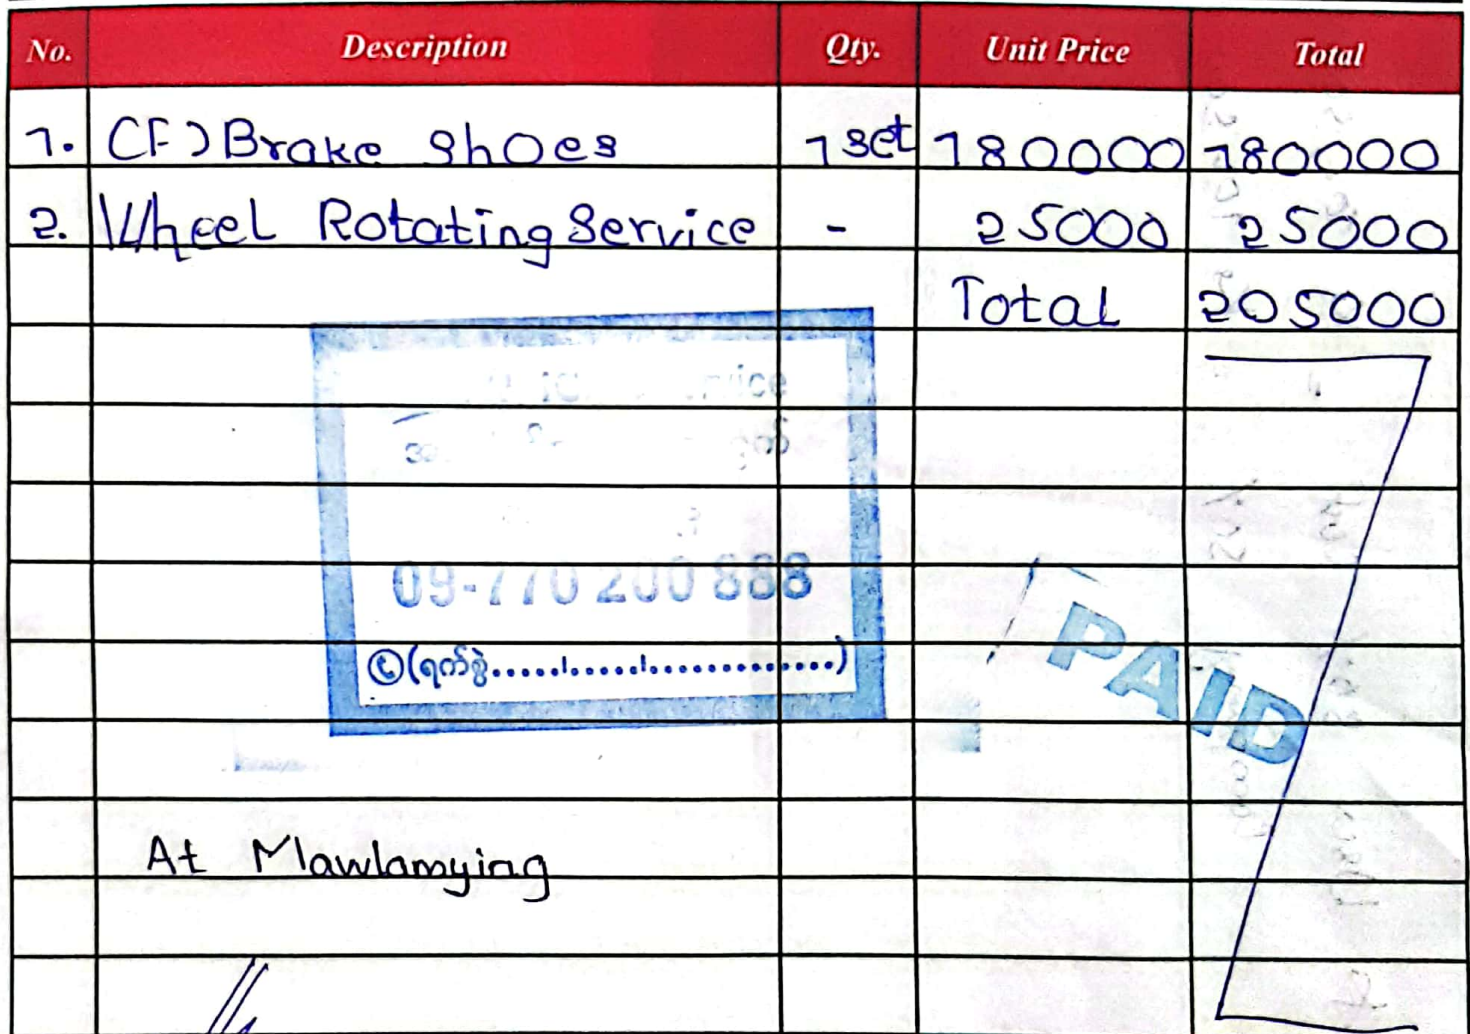 No. Description Qty. Unit Price Total
1. (F) Brake Shoes 1 set 180000 180000
2. Wheel Rotating Service - 25000 25000
Total 205000
09-770 200 888
(ရက်စွဲ......./......./..............)
PAID
At Mawlamying